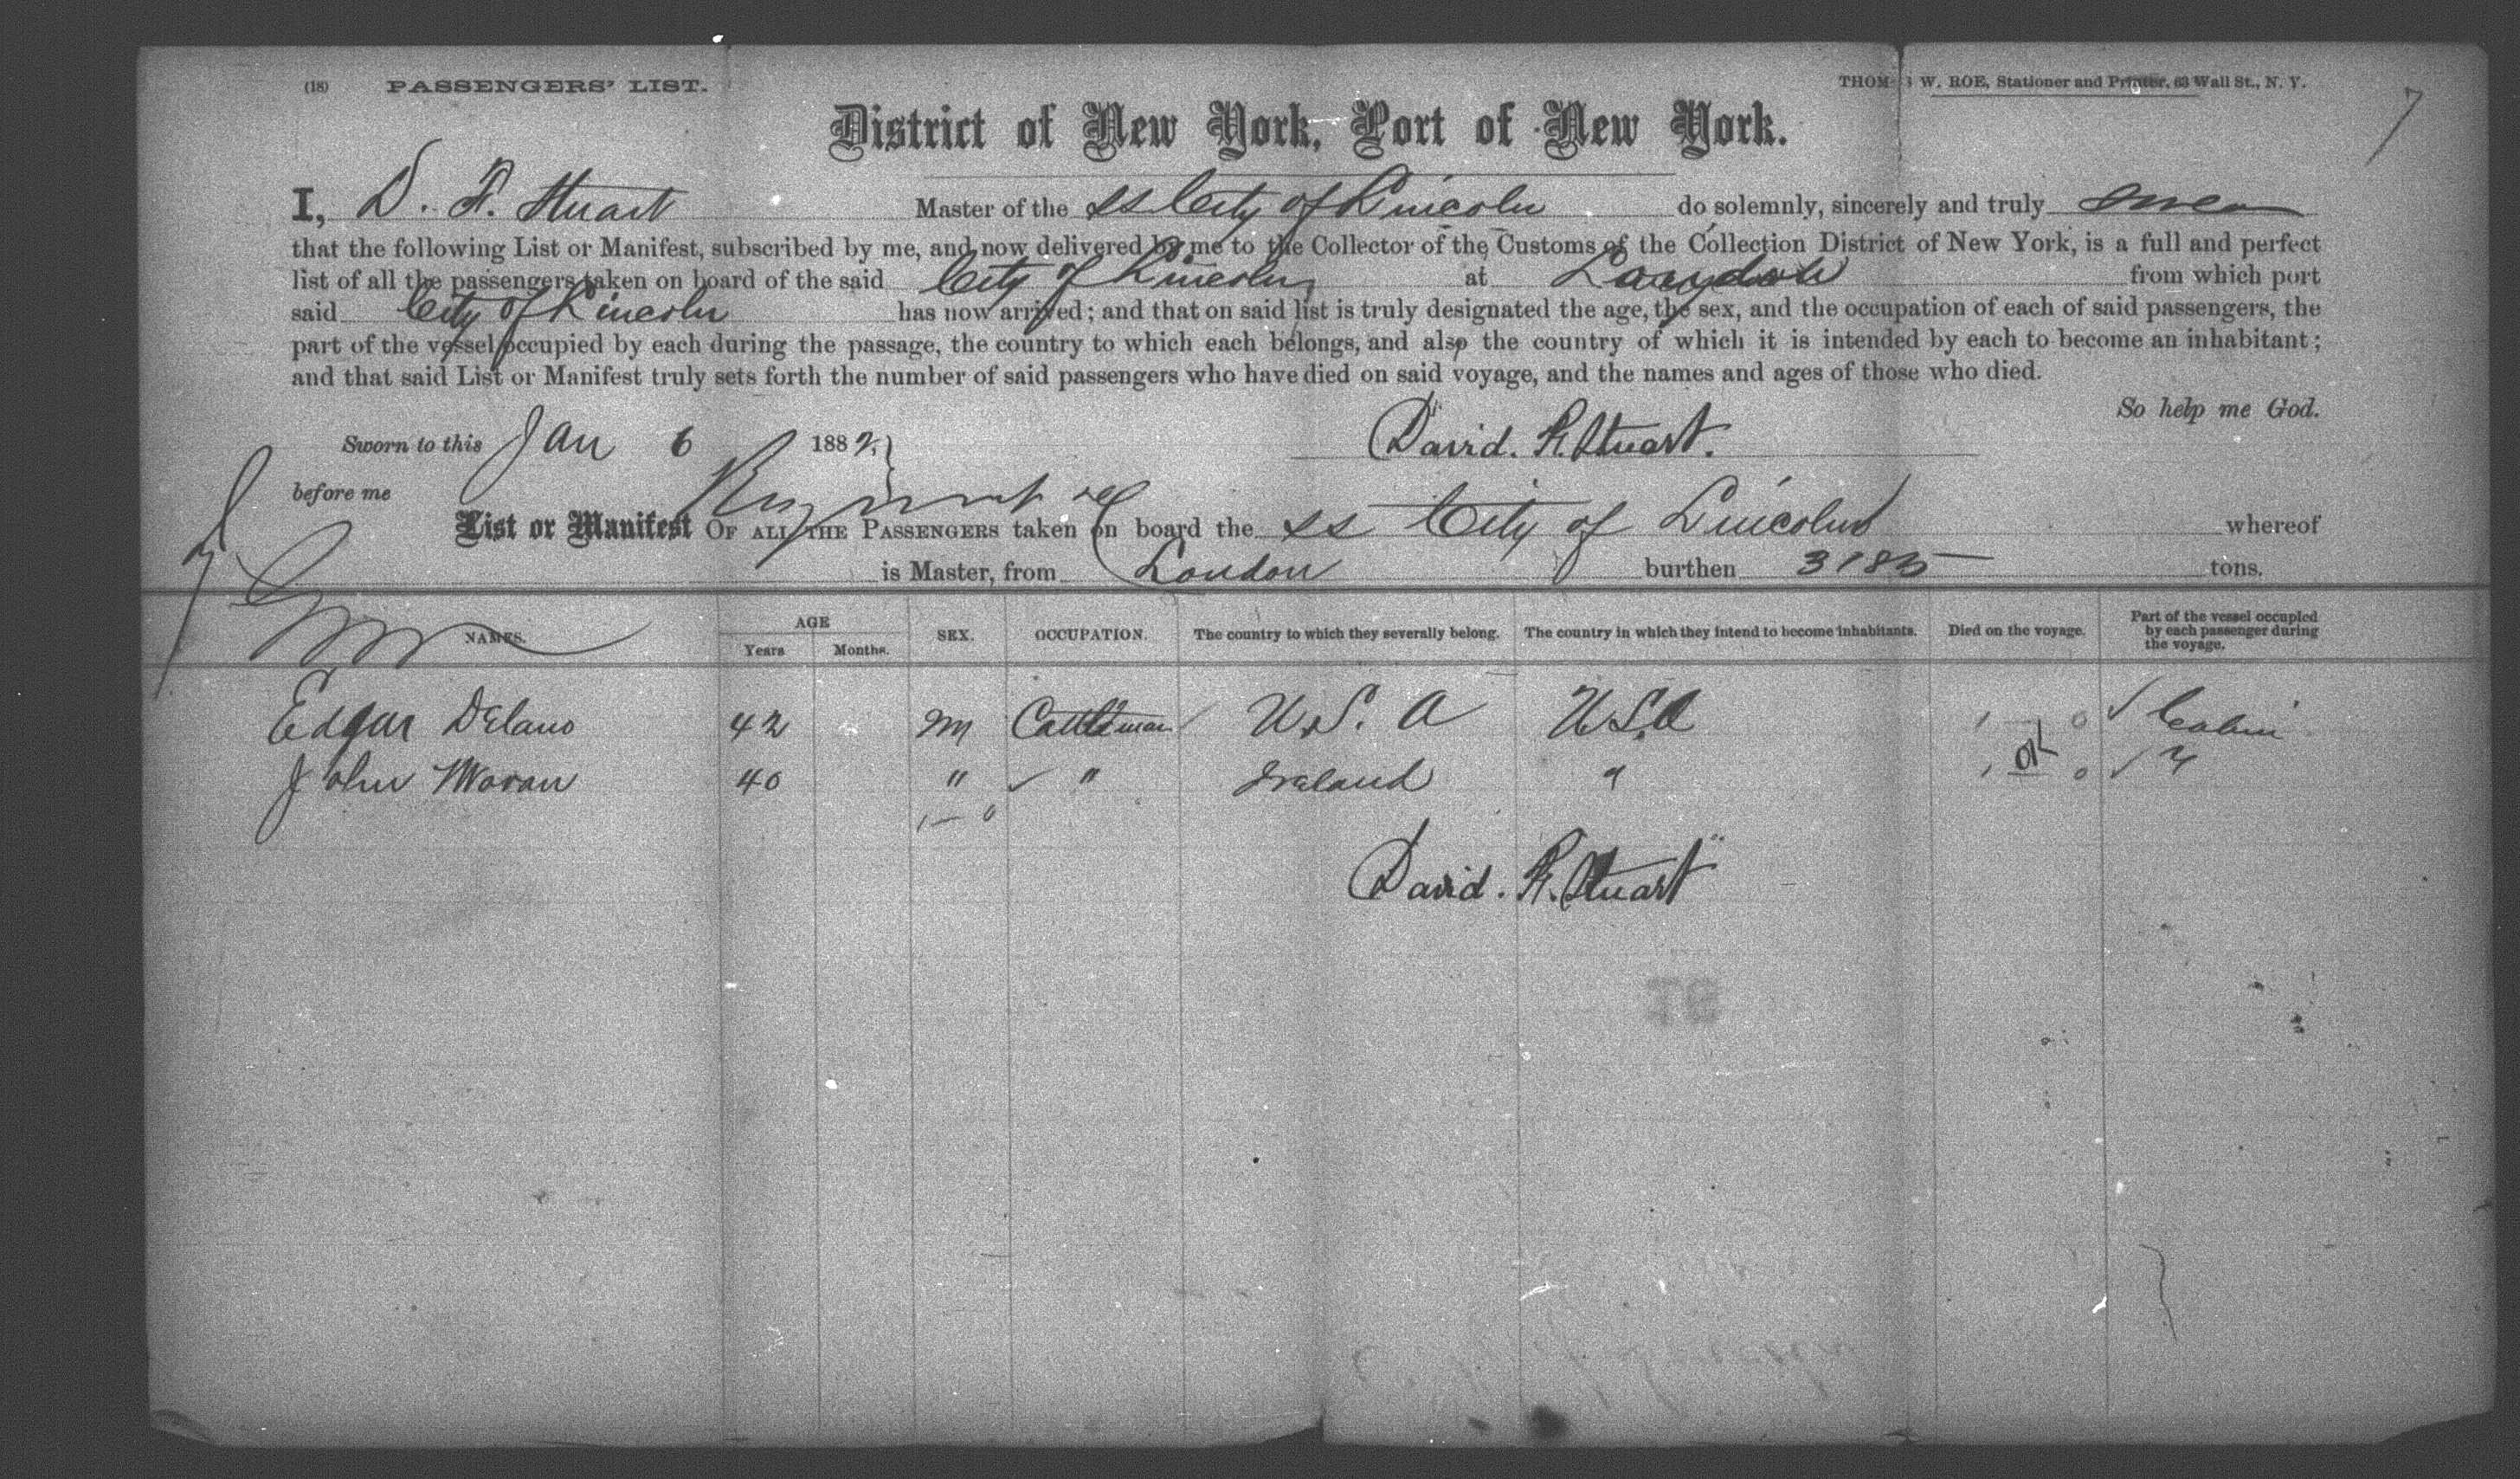 (18) PASSENGERS' LIST.
THOM S W. ROE, Stationer and Printer, 63 Wall St., N. Y.
7
District of New York, Port of New York.
I, D. R. Stuart Master of the SS City of Lincoln do solemnly, sincerely and truly swear
that the following List or Manifest, subscribed by me, and now delivered by me to the Collector of the Customs of the Collection District of New York, is a full and perfect
list of all the passengers taken on board of the said City of Lincoln at London from which port
said City of Lincoln has now arrived; and that on said list is truly designated the age, the sex, and the occupation of each of said passengers, the
part of the vessel occupied by each during the passage, the country to which each belongs, and also the country of which it is intended by each to become an inhabitant;
and that said List or Manifest truly sets forth the number of said passengers who have died on said voyage, and the names and ages of those who died.
So help me God.
Sworn to this Jan 6 1882 David. R. Stuart.
before me
List or Manifest OF ALL THE PASSENGERS taken on board the SS City of Lincoln whereof
is Master, from London burthen 3183 tons.
NAMES. AGE Years Months. SEX. OCCUPATION. The country to which they severally belong. The country in which they intend to become inhabitants. Died on the voyage. Part of the vessel occupied by each passenger during the voyage.
Edgar Delano 42 M Cattleman U. S. A U S. A Cabin
John Moran 40 " " Ireland "
David. R. Stuart